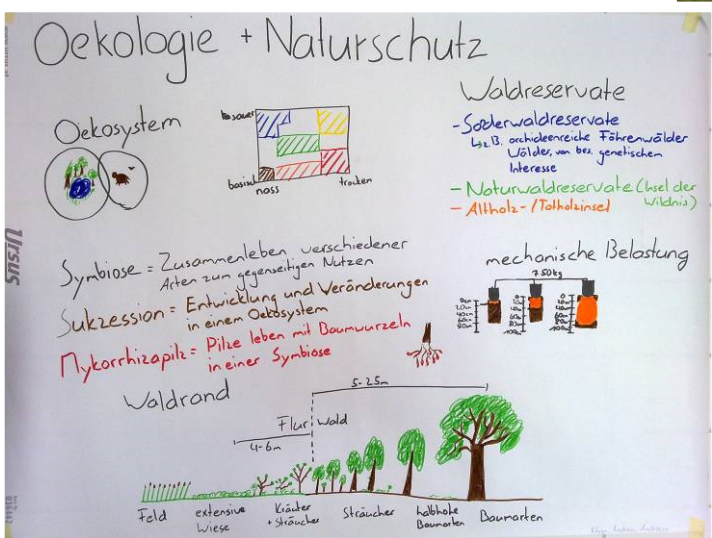 Oekologie + Naturschutz
Oekosystem
basauer
basisch
nass
trocken
Waldreservate
- Soderwaldreservate
↳ z.B. orchideenreiche Föhrenwälder
Wälder, von bes. genetischen
Interesse
- Naturwaldreservate (Insel der
Wildnis)
- Altholz-/Totholzinsel
Symbiose = Zusammenleben verschiedener
Arten zum gegenseitigen Nutzen
Sukzession = Entwicklung und Veränderungen
in einem Oekosystem
Mykorrhizapilz = Pilze leben mit Baumwurzeln
in einer Symbiose
mechanische Belastung
750kg
0cm
20cm
40cm
60cm
80cm
0
20
40
60
80
100
0
20
40
60
80
100
Waldrand
5-25m
Flur Wald
4-6m
Feld
extensive
Wiese
Kräuter
+ Sträucher
Sträucher
halbhohe
Baumarten
Baumarten
Ursus